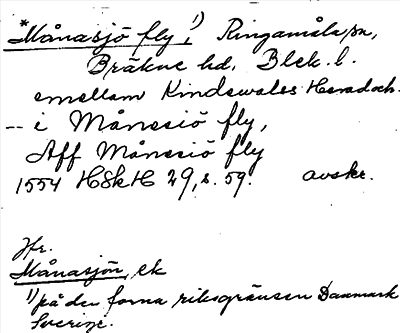 *Månasjö fly,¹) Ringamåla sn,
Bräkne hd, Blek. l.
emellom Kindewaless Herad och
-- i Månesiö fly,
Aff Månesiö fly
1554 HSkH 29, s. 59. avskr.
Jfr.
Månasjön, ek
¹) på den forna riksgränsen Danmark
Sverige.